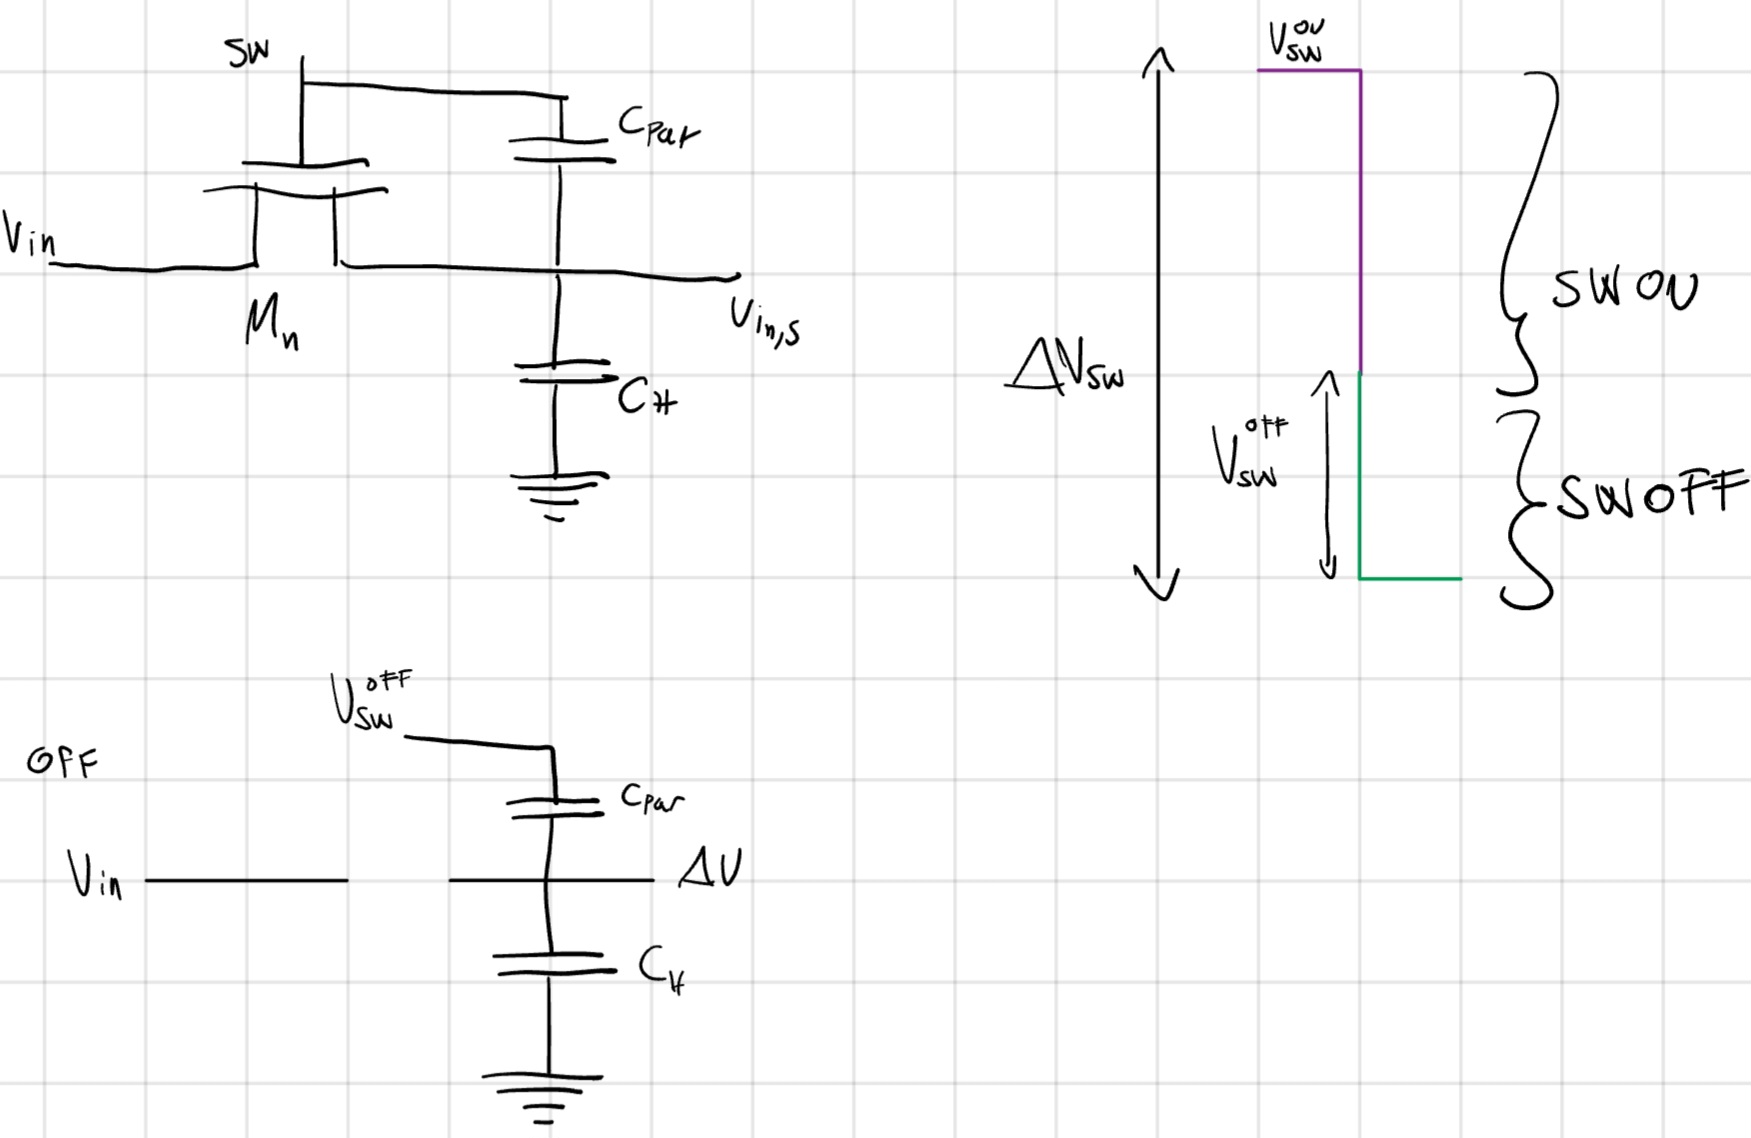 SW
Cpar
Vin
Mn
Vin,s
CH
VSW ON
ΔVSW
VSW OFF
SW ON
SW OFF
VSW OFF
OFF
Cpar
Vin
ΔV
CH